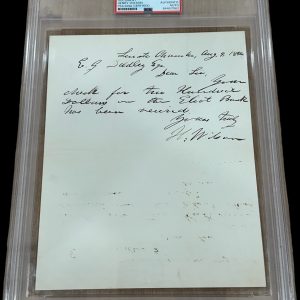 HENRY WILSON
AUTHENTIC
AUTO
PSA
Senate Chamber, Aug. 9, 18
E G Dudley Esq.
Dear Sir,
Your
check for two Hundred
Dollars on the Eliot Bank
has been received
Yours Truly
H. Wilson